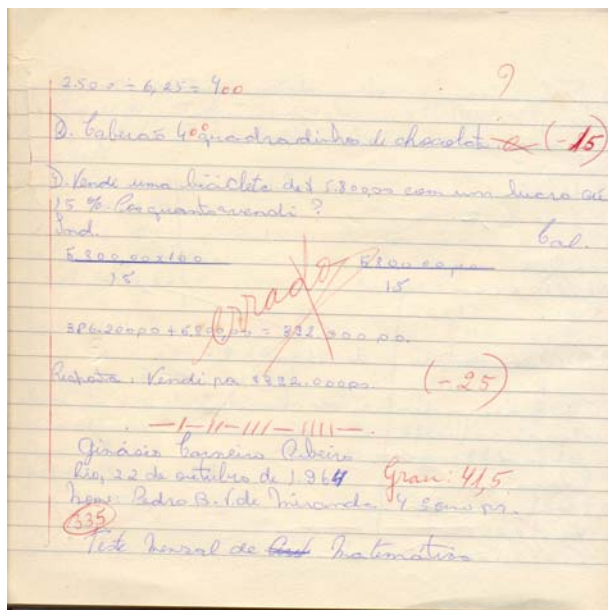 2500 ÷ 6,25 = 400
R. Caberão 400 quadradinhos de chocolate. (-15)
D. Vendi uma bicicleta de $ 5.800,00 com um lucro de
15 %. Por quanto a vendi?
Ind. Cal.
5.800,00 x 100 5800 00,00
15 15
errado
386.200,00 + 5.800,00 = 392.000,00.
Resposta. Vendi por $ 392.000,00. (-25)
—1—11—111—1111—.
Ginásio Carneiro Ribeiro
Rio, 22 de outubro de 1.964 Grau: 41,5
Nome: Pedro B. de Miranda 4
335
Teste Mensal de Matemática